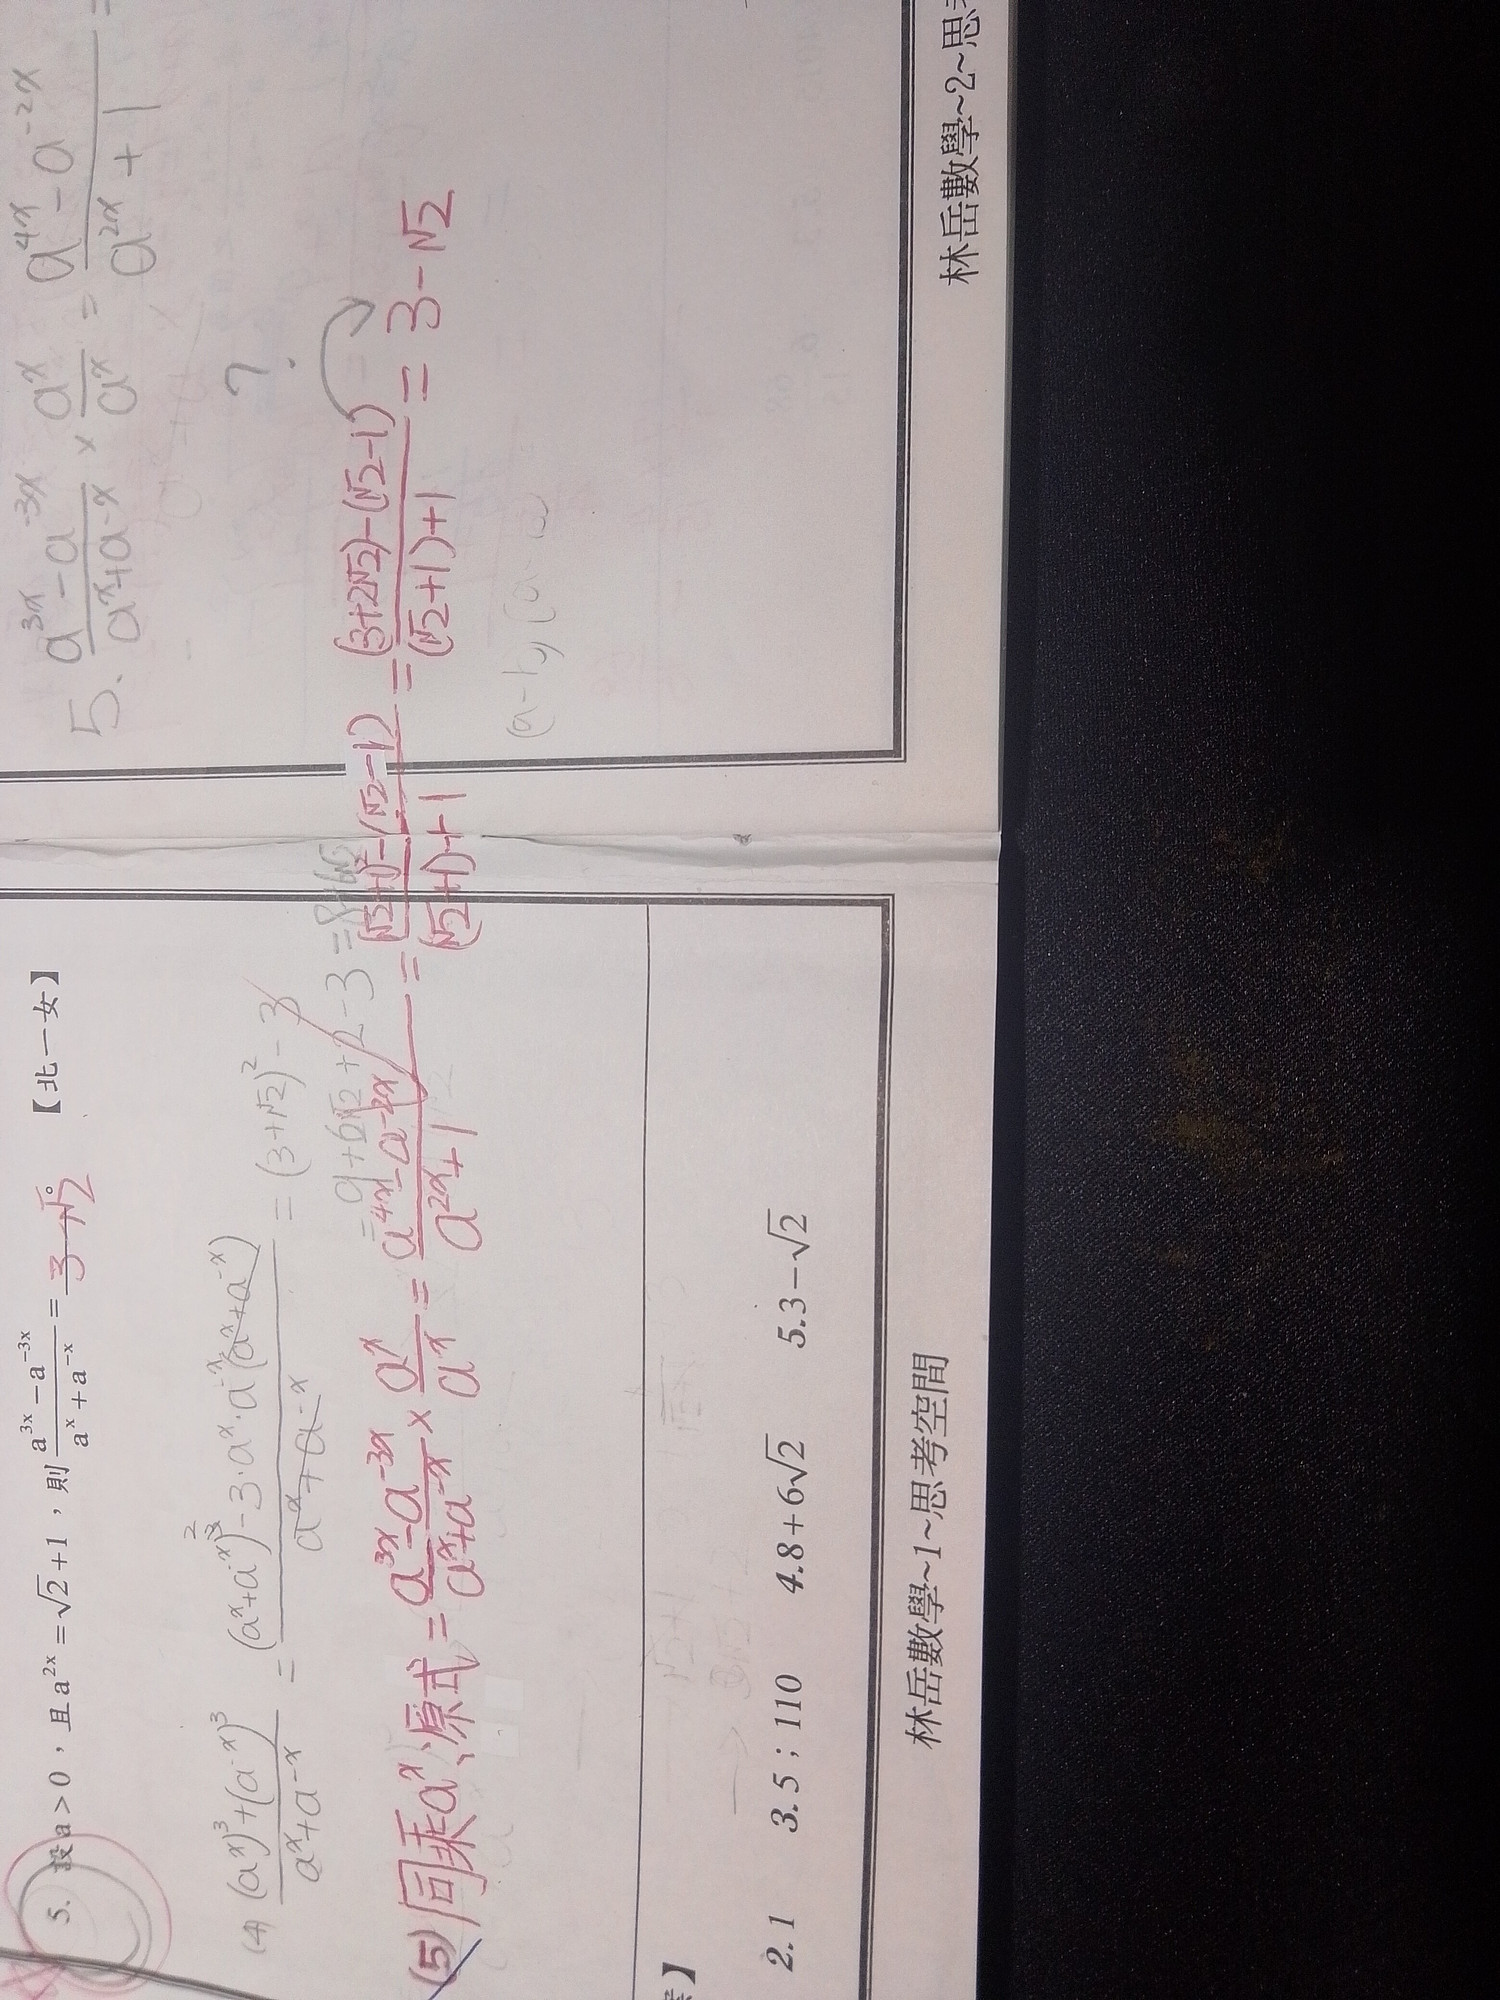 5. 設 a > 0，且 a^{2x} = √2 + 1，則 \frac{a^{3x} - a^{-3x}}{a^x + a^{-x}} = 3-√2。 【北一女】
(4) \frac{(a^x)^3 + (a^{-x})^3}{a^x + a^{-x}} = \frac{(a^x + a^{-x})^{3 2} - 3·a^x·a^{-x}(a^x + a^{-x})}{a^x + a^{-x}} = (3+√2)^2 - 3
= 9+6√2+2-3 = 8+6√2
(5) 同乘a^x、原式 = \frac{a^{3x} - a^{-3x}}{a^x + a^{-x}} × \frac{a^x}{a^x} = \frac{a^{4x} - a^{-2x}}{a^{2x} + 1} = \frac{(√2+1)^2 - (√2-1)}{(√2+1)+1} = \frac{(3+2√2)-(√2-1)}{(√2+1)+1} = 3-√2
2. 1 3. 5；110 4. 8+6√2 5. 3-√2
林岳數學~1~思考空間
5. \frac{a^{3x} - a^{-3x}}{a^x + a^{-x}} × \frac{a^x}{a^x} = \frac{a^{4x} - a^{-2x}}{a^{2x} + 1} =
?
林岳數學~2~思